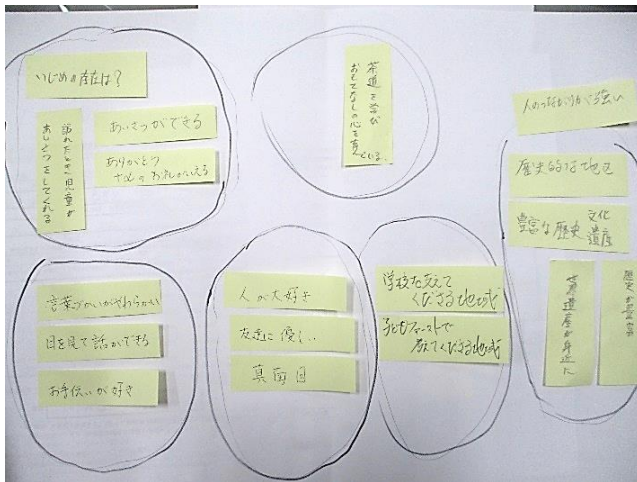 いじめの存在は?
訪れたとき児童が
あいさつをしてくれる
あいさつができる
ありがとう
などのお礼がいえる
茶道を学び
おもてなしの心を
人のつながりが強い
歴史的な地区
豊富な歴史文化
遺産
世界遺産が身近に
歴史が豊富
言葉づかいがやわらかい
目を見て話ができる
お手伝いが好き
人が大好き
友達に優しい
真面目
学校を支えて
くださる地域
子どもファーストで
考えてくださる地域